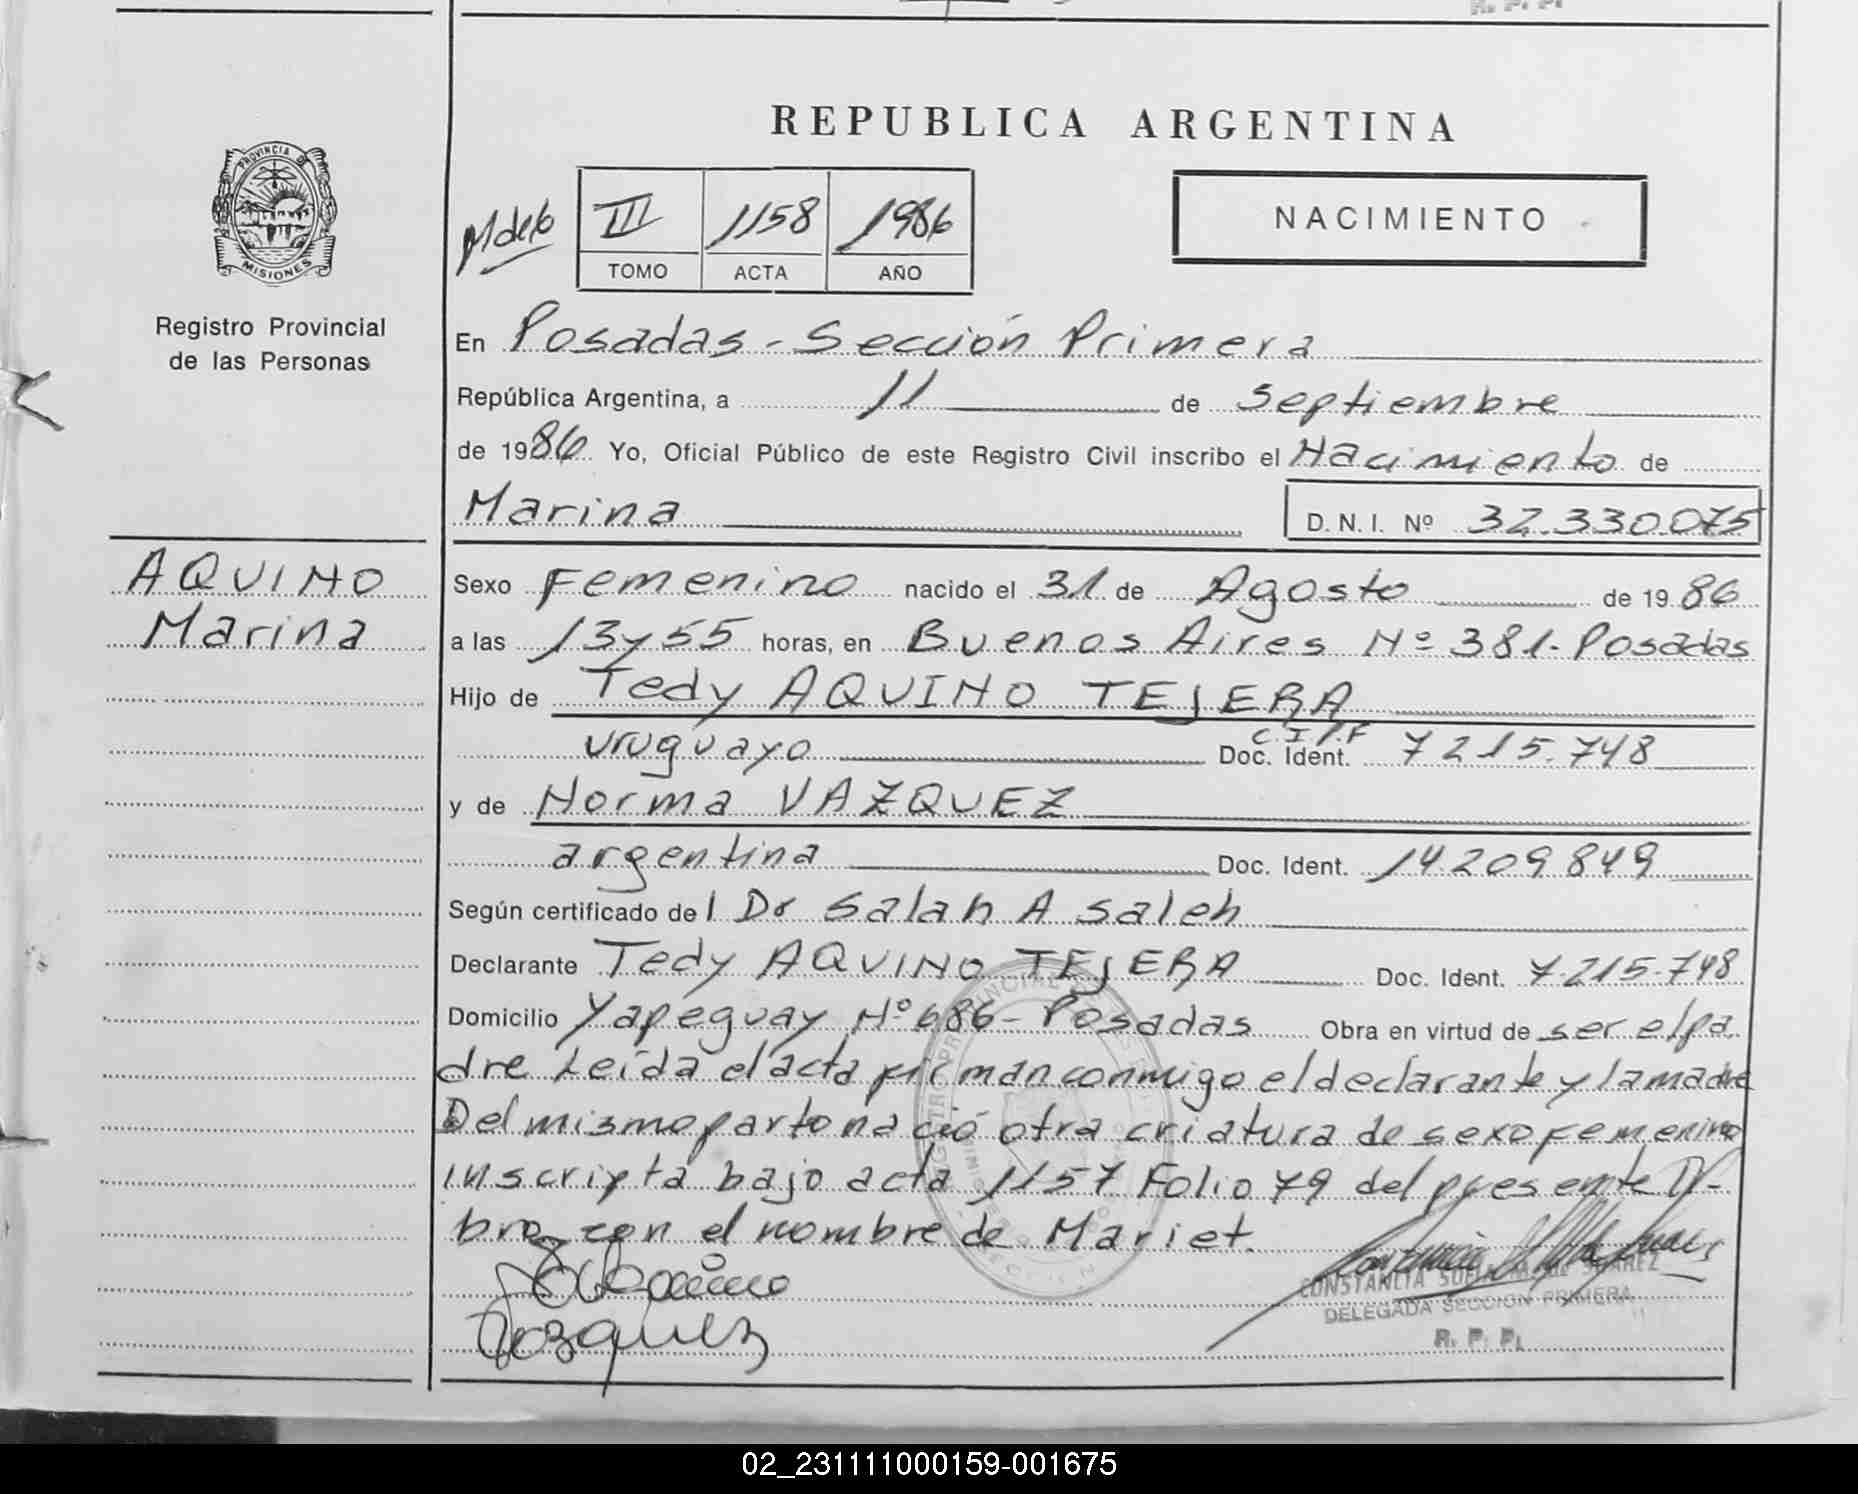 R. P. P.
REPUBLICA ARGENTINA
PROVINCIA DE
MISIONES
Registro Provincial
de las Personas
III 1158 1986
TOMO ACTA AÑO
NACIMIENTO
En Posadas - Sección Primera
República Argentina, a 11 de Septiembre
de 1986 Yo, Oficial Público de este Registro Civil inscribo el Nacimiento de
Marina D. N. I. Nº 32.330.075
AQUINO
Marina
Sexo Femenino nacido el 31 de Agosto de 1986
a las 13 y 55 horas, en Buenos Aires Nº 381 - Posadas
Hijo de Tedy AQUINO TEJERA
uruguayo Doc. Ident. C.I.P.F 7215.748
y de Norma VAZQUEZ
argentina Doc. Ident. 14.209849
Según certificado del Dr Salah A Saleh
Declarante Tedy AQUINO TEJERA Doc. Ident. 7.215.748
Domicilio Yapeguay Nº 686 - Posadas Obra en virtud de ser el pa
dre Leída el acta firman conmigo el declarante y la madre
Del mismo parto nació otra criatura de sexo femenino
inscripta bajo acta 1157 Folio 79 del presente li-
bro con el nombre de Mariet.
Vazquez
DELEGADA SECCION PRIMERA
R. P. P.
02_231111000159-001675